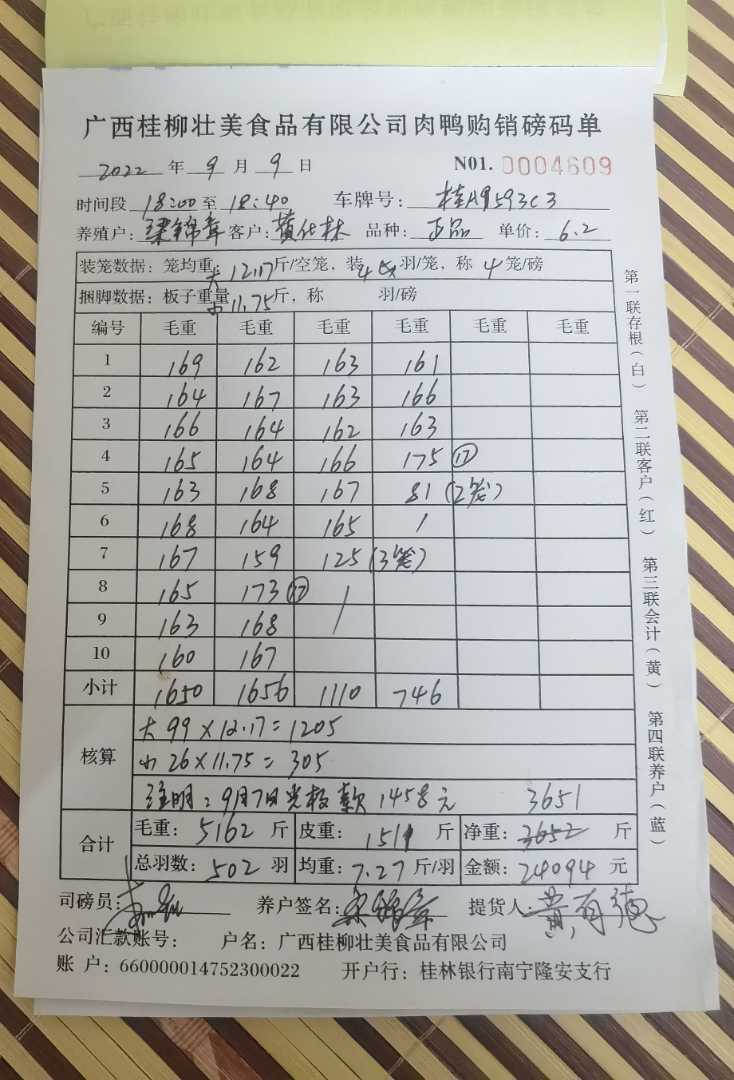 广西桂柳壮美食品有限公司肉鸭购销磅码单
2022 年 9 月 9 日 N01. 0004609
时间段 18:00 至 18:40 车牌号: 593C3
养殖户: 梁锦章 客户: 黄仕林 品种: 正品 单价: 6.2
装笼数据: 笼均重 大 12.17 斤/空笼, 装 4 羽/笼, 称 4 笼/磅
捆脚数据: 板子重量 小 11.75 斤, 称 羽/磅
编号 毛重 毛重 毛重 毛重 毛重 毛重
1 169 162 163 161
2 164 167 163 166
3 166 164 162 163
4 165 164 166 175 ⑰
5 163 168 167 81 (2笼)
6 168 164 165 /
7 167 159 125 (3笼)
8 165 173 ⑰ /
9 163 168 /
10 160 167
小计 1650 1656 1110 746
核算
大 99 × 12.17 = 1205
小 26 × 11.75 = 305
注明: 9月7日 款 1458 元 3651
合计
毛重: 5162 斤 皮重: 1511 斤 净重: 3652 斤
总羽数: 502 羽 均重: 7.27 斤/羽 金额: 24094 元
司磅员: 养户签名: 梁锦章 提货人:
公司汇款账号: 户名: 广西桂柳壮美食品有限公司
账 户: 660000014752300022 开户行: 桂林银行南宁隆安支行
第一联存根(白) 第二联客户(红) 第三联会计(黄) 第四联养户(蓝)